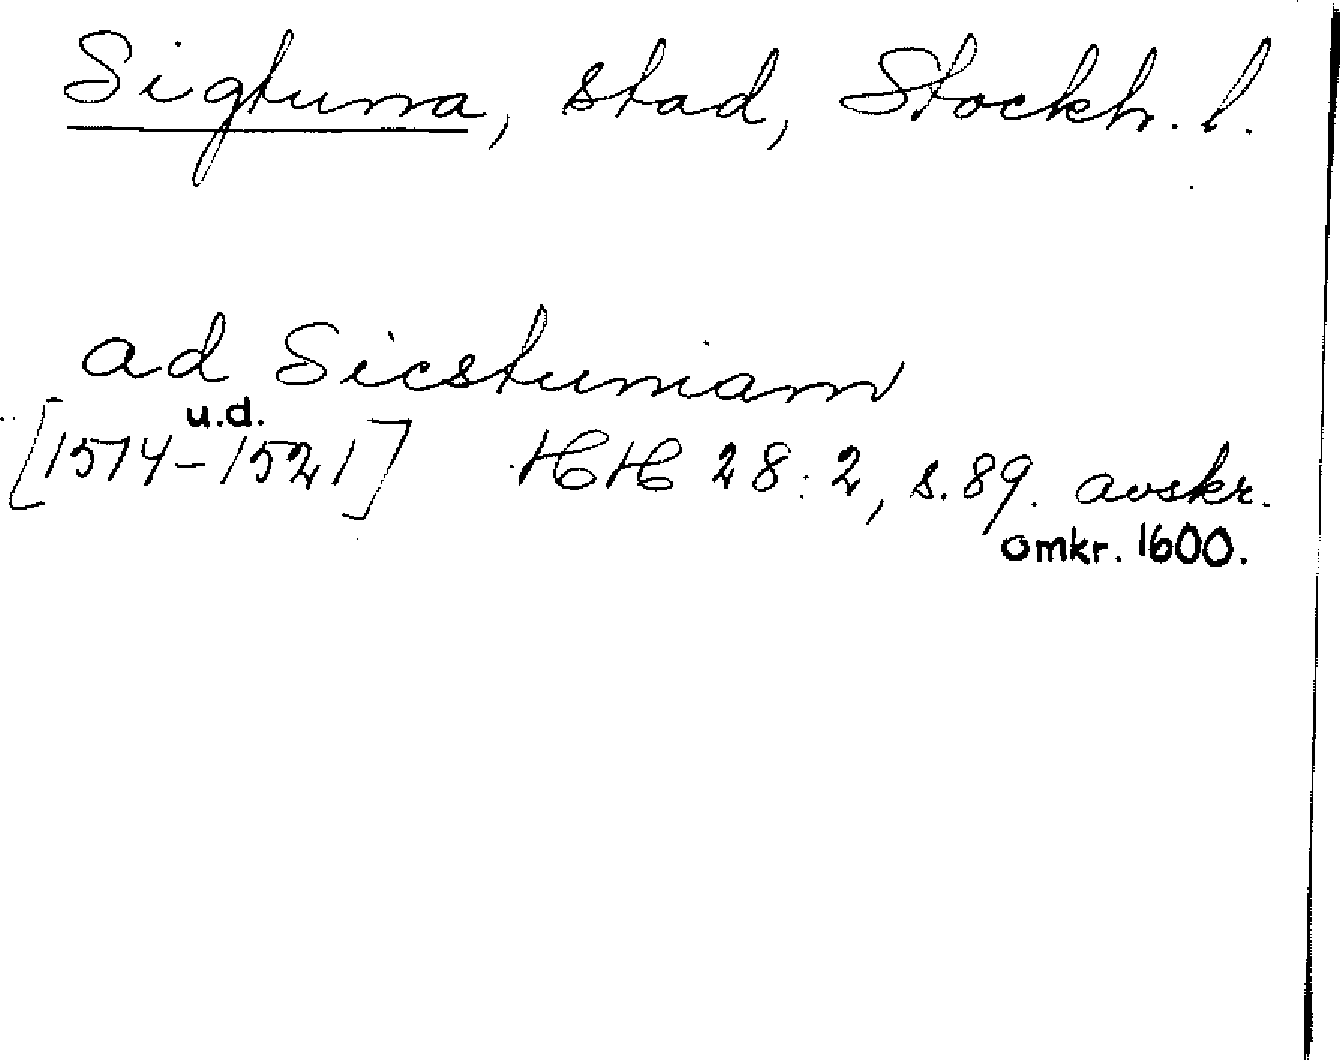 Sigtuna, stad, Stockh. l.
ad Sicstuniam
u.d.
[1514-1521] HH 28:2, s.89. avskr.
omkr. 1600.